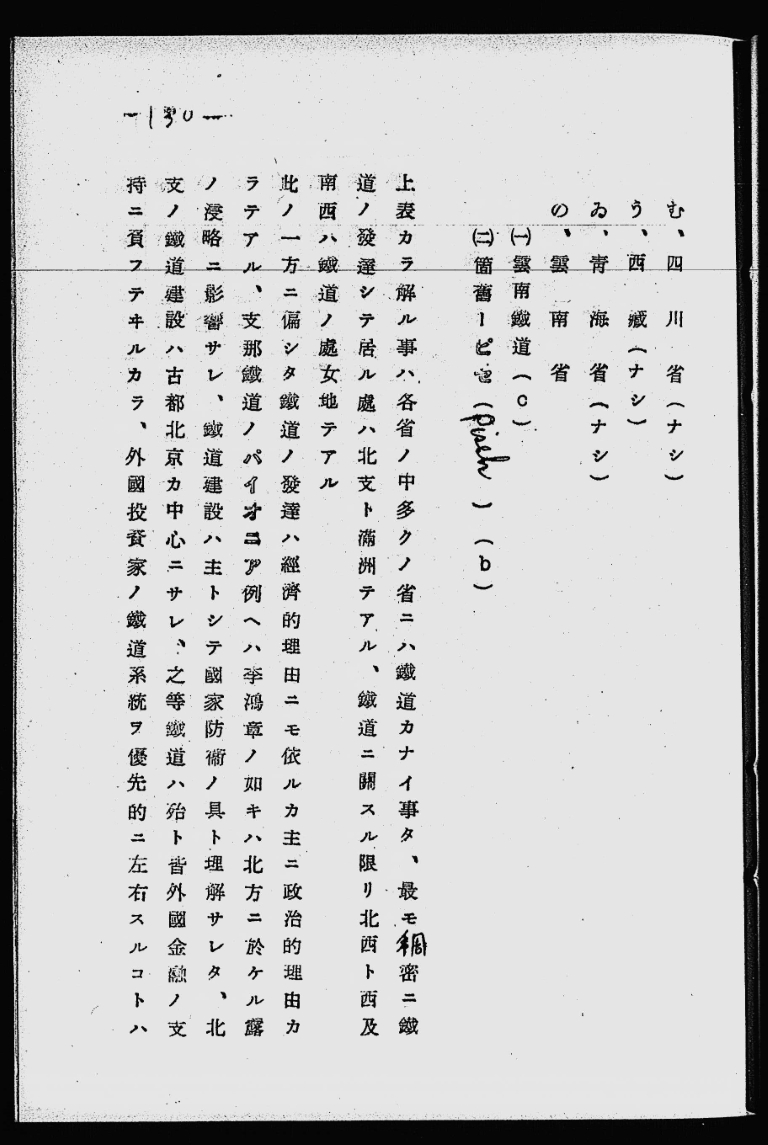 —130—
む、四川省(ナシ)
う、西藏(ナシ)
ゐ、青海省(ナシ)
の、雲南省
㈠雲南鐵道(c)
㈡箇舊ーピセ(Piseh)(b)
上表カラ解ル事ハ各省ノ中多クノ省ニハ鐵道カナイ事タ、最モ稠密ニ鐵
道ノ發達シテ居ル處ハ北支ト滿洲テアル、鐵道ニ關スル限リ北西ト西及
南西ハ鐵道ノ處女地テアル
此ノ一方ニ偏シタ鐵道ノ發達ハ經濟的理由ニモ依ルカ主ニ政治的理由カ
ラテアル、支那鐵道ノパイオニア例ヘハ李鴻章ノ如キハ北方ニ於ケル露
ノ浸略ニ影響サレ、鐵道建設ハ主トシテ國家防衞ノ具ト理解サレタ、北
支ノ鐵道建設ハ古都北京カ中心ニサレ、之等鐵道ハ殆ト皆外國金融ノ支
持ニ負フテヰルカラ、外國投資家ノ鐵道系統ヲ優先的ニ左右スルコトハ